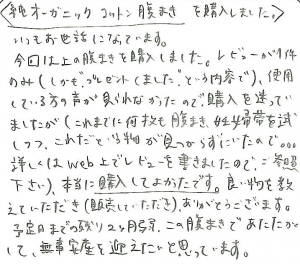 <純オーガニック コットン 腹まき を購入しました。>
いつもお世話になっています。
今回は上の腹まきを購入しました。レビューが1件
のみ(しかも“プレゼントしました”という内容で)、使用
している方の声が見られなかったので購入を迷って
いましたが(これまでに何枚も腹まき、妊婦帯を試
しつつ、これだという物が見つからずにいたので…
詳しくはweb上でレビューを書きましたので、ご参照
下さい)、本当に購入してよかったです。良い物を教
えていただき(販売していただき)、ありがとうございます。
予定日までの残り2ヶ月弱、この腹まきであたたか
して、無事安産を迎えたいと思っています。